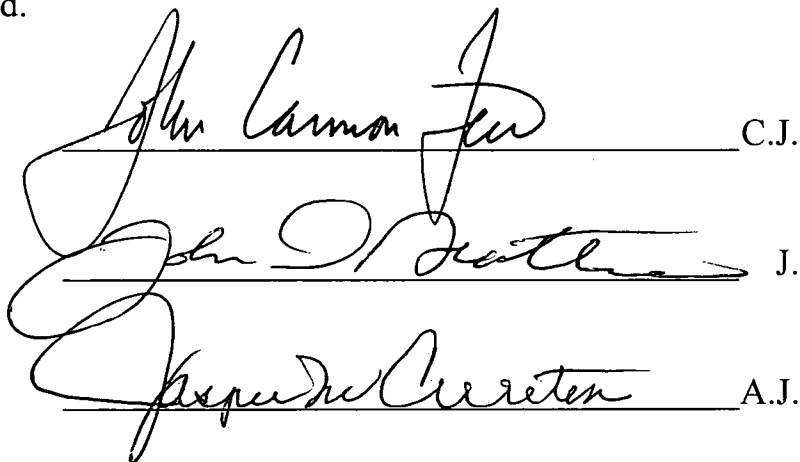 d.
John Cannon Few C.J.
John D. Geathers J.
Jasper M. Cureton A.J.